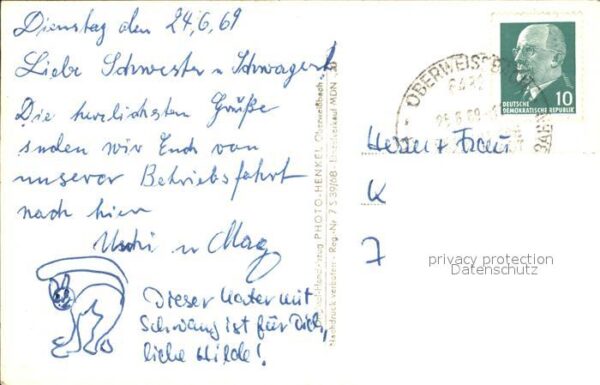 Dienstag den 24.6.69
Liebe Schwester u Schwager
Die herzlichsten Grüße
senden wir Euch von
unserer Betriebsfahrt
nach hier
Uschi u
Dieser Kater mit
Schwanz ist für Dich,
liebe Hilde!
PHOTO-HENKEL, Oberweißbach
Reg.-Nr. 7 S 39/68 Einzelverkauf MDN
Nachdruck verboten
OBERWEISSBACH
DEUTSCHE
DEMOKRATISCHE REPUBLIK
10
Herrn + Frau
K
7
privacy protection
Datenschutz